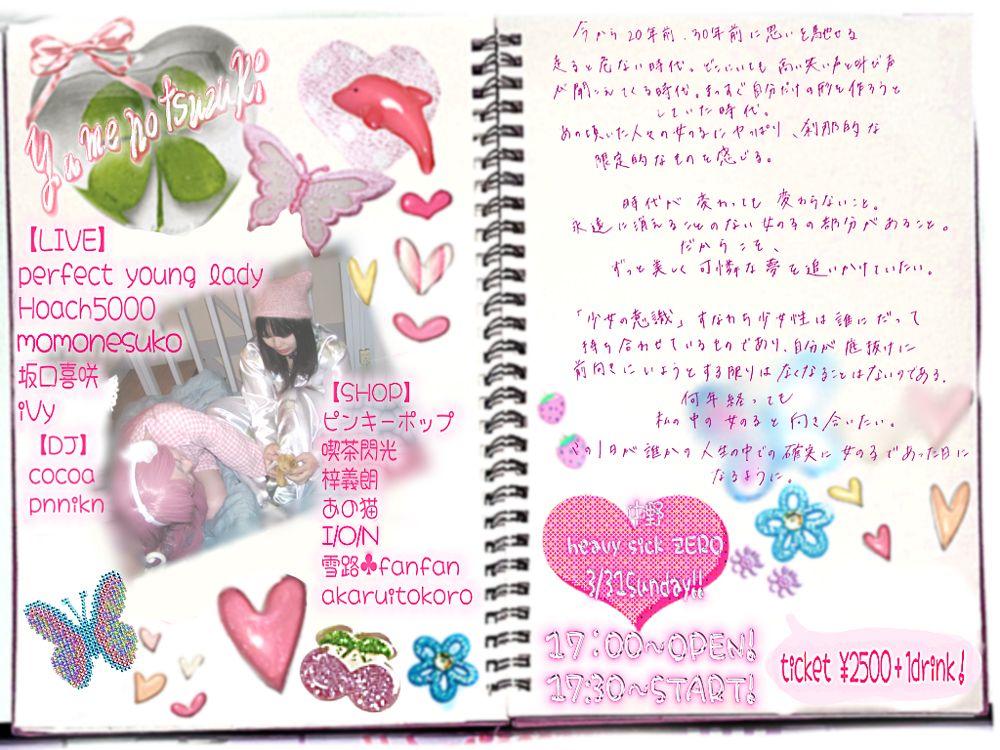 Yume no tsuzuki
【LIVE】
perfect young lady
Hoach5000
momonesuko
坂口喜咲
iVy
【DJ】
cocoa
pnnikn
【SHOP】
ピンキーポップ
喫茶閃光
梓義朗
あの猫
I/O/N
雪路♣fanfan
akaruitokoro
今から20年前、30年前に思いを馳せる
走ると危ない時代。どこにいても高い笑い声と叫び声
が聞こえてくる時代。まっすぐ自分だけの形を作ろうと
していた時代。
あの頃いた人々の女の子にやっぱり、刹那的な
限定的なものを感じる。
時代が変わっても変わらないこと。
永遠に消えることのない女の子の部分があること。
だからこそ、
ずっと美しく可憐な夢を追いかけていたい。
「少女の意識」すなわち少女性は誰にだって
持ち合わせているものであり、自分が底抜けに
前向きにいようとする限りはなくなることはないのである。
何年経っても
私の中の女の子と向き合いたい。
この1日が誰かの人生の中での確実に女の子であった日に
なるように。
中野
heavy sick ZERO
3/31Sunday!!
17:00~OPEN!
17:30~START!
ticket ¥2500+1drink!